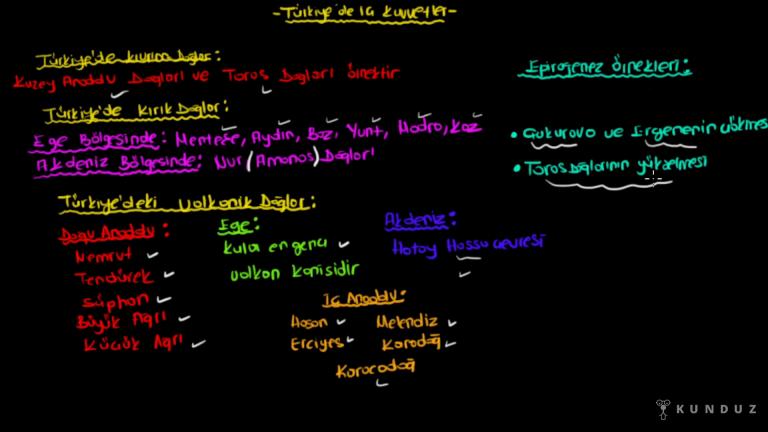 -Türkiye'de İç Kuvvetler-
Türkiye'de kıvrım Dağlar:
Kuzey Anadolu Dağları ve Toros Dağları örnektir
Türkiye'de Kırık Dağlar:
Ege Bölgesinde: Menteşe, Aydın, Boz, Yunt, Madra, Kaz
Akdeniz Bölgesinde: Nur (Amanos) Dağları
Türkiye'deki Volkanik Dağlar:
Doğu Anadolu:
Nemrut
Tendürek
Süphan
Büyük Ağrı
Küçük Ağrı
Ege:
Kula en genç
volkan konisidir
Akdeniz:
Hatay Hassa çevresi
İç Anadolu:
Hasan Melendiz
Erciyes Karadağ
Karacadağ
Epirojenez Örnekleri:
• Çukurova ve Ergenenin çökmes
• Toros Dağlarının yükselmesi
KUNDUZ